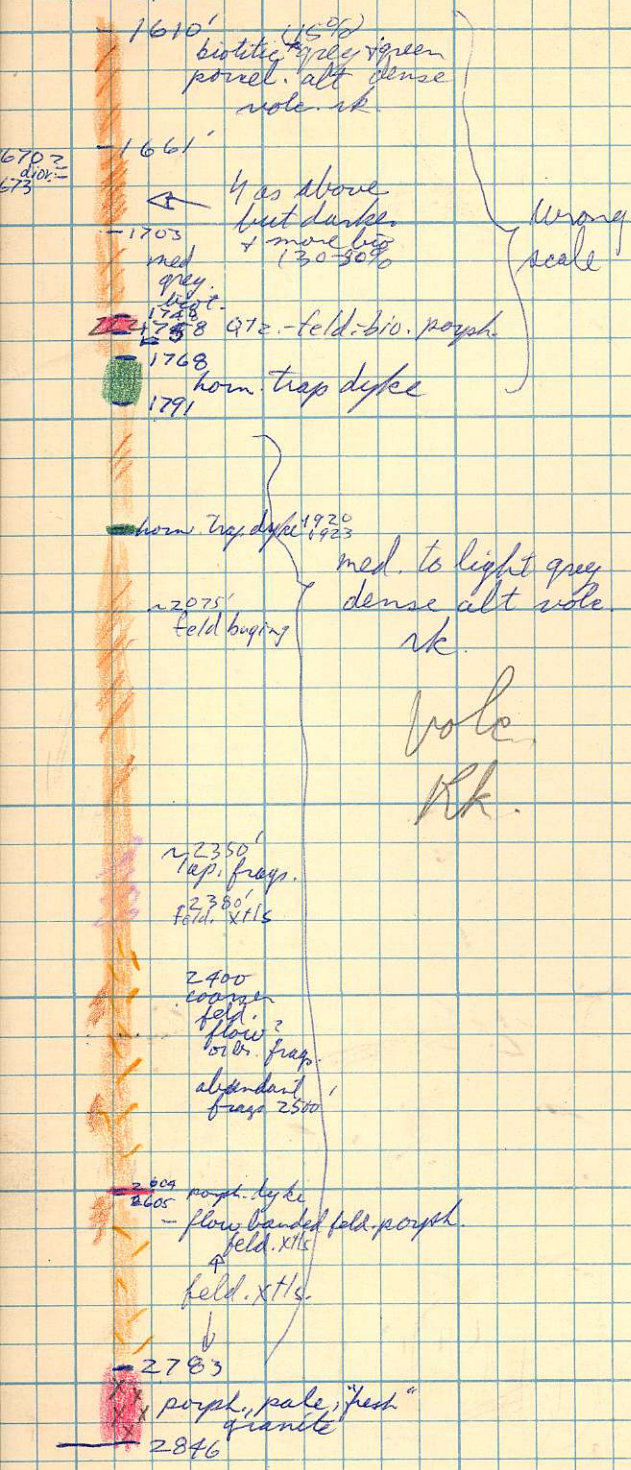 1610' (15%)
biotitic grey + green
porcel. alt dense
volc. rk.
1661'
1670 ?
dior.
1673
as above
but darker
+ more bio
(30-50%
1703
med
grey.
biot.
1748
1758 QTz.-feld-bio. porph.
1768
horn. trap dyke
1791
Wrong
scale
horn. trap dyke 1920
1923
med. to light grey
dense alt volc.
rk.
~2075'
feld
Volc.
Rk.
~2350'
lap. frags.
2380'
feld. xtls
2400
coarser
feld.
flow?
or frags.
abundant
frags 2500'
2604
2605 porph. dyke
- flow banded feld. porph.
feld. xtls
feld. xtls.
2783
porph., pale, "fresh"
granite
2846